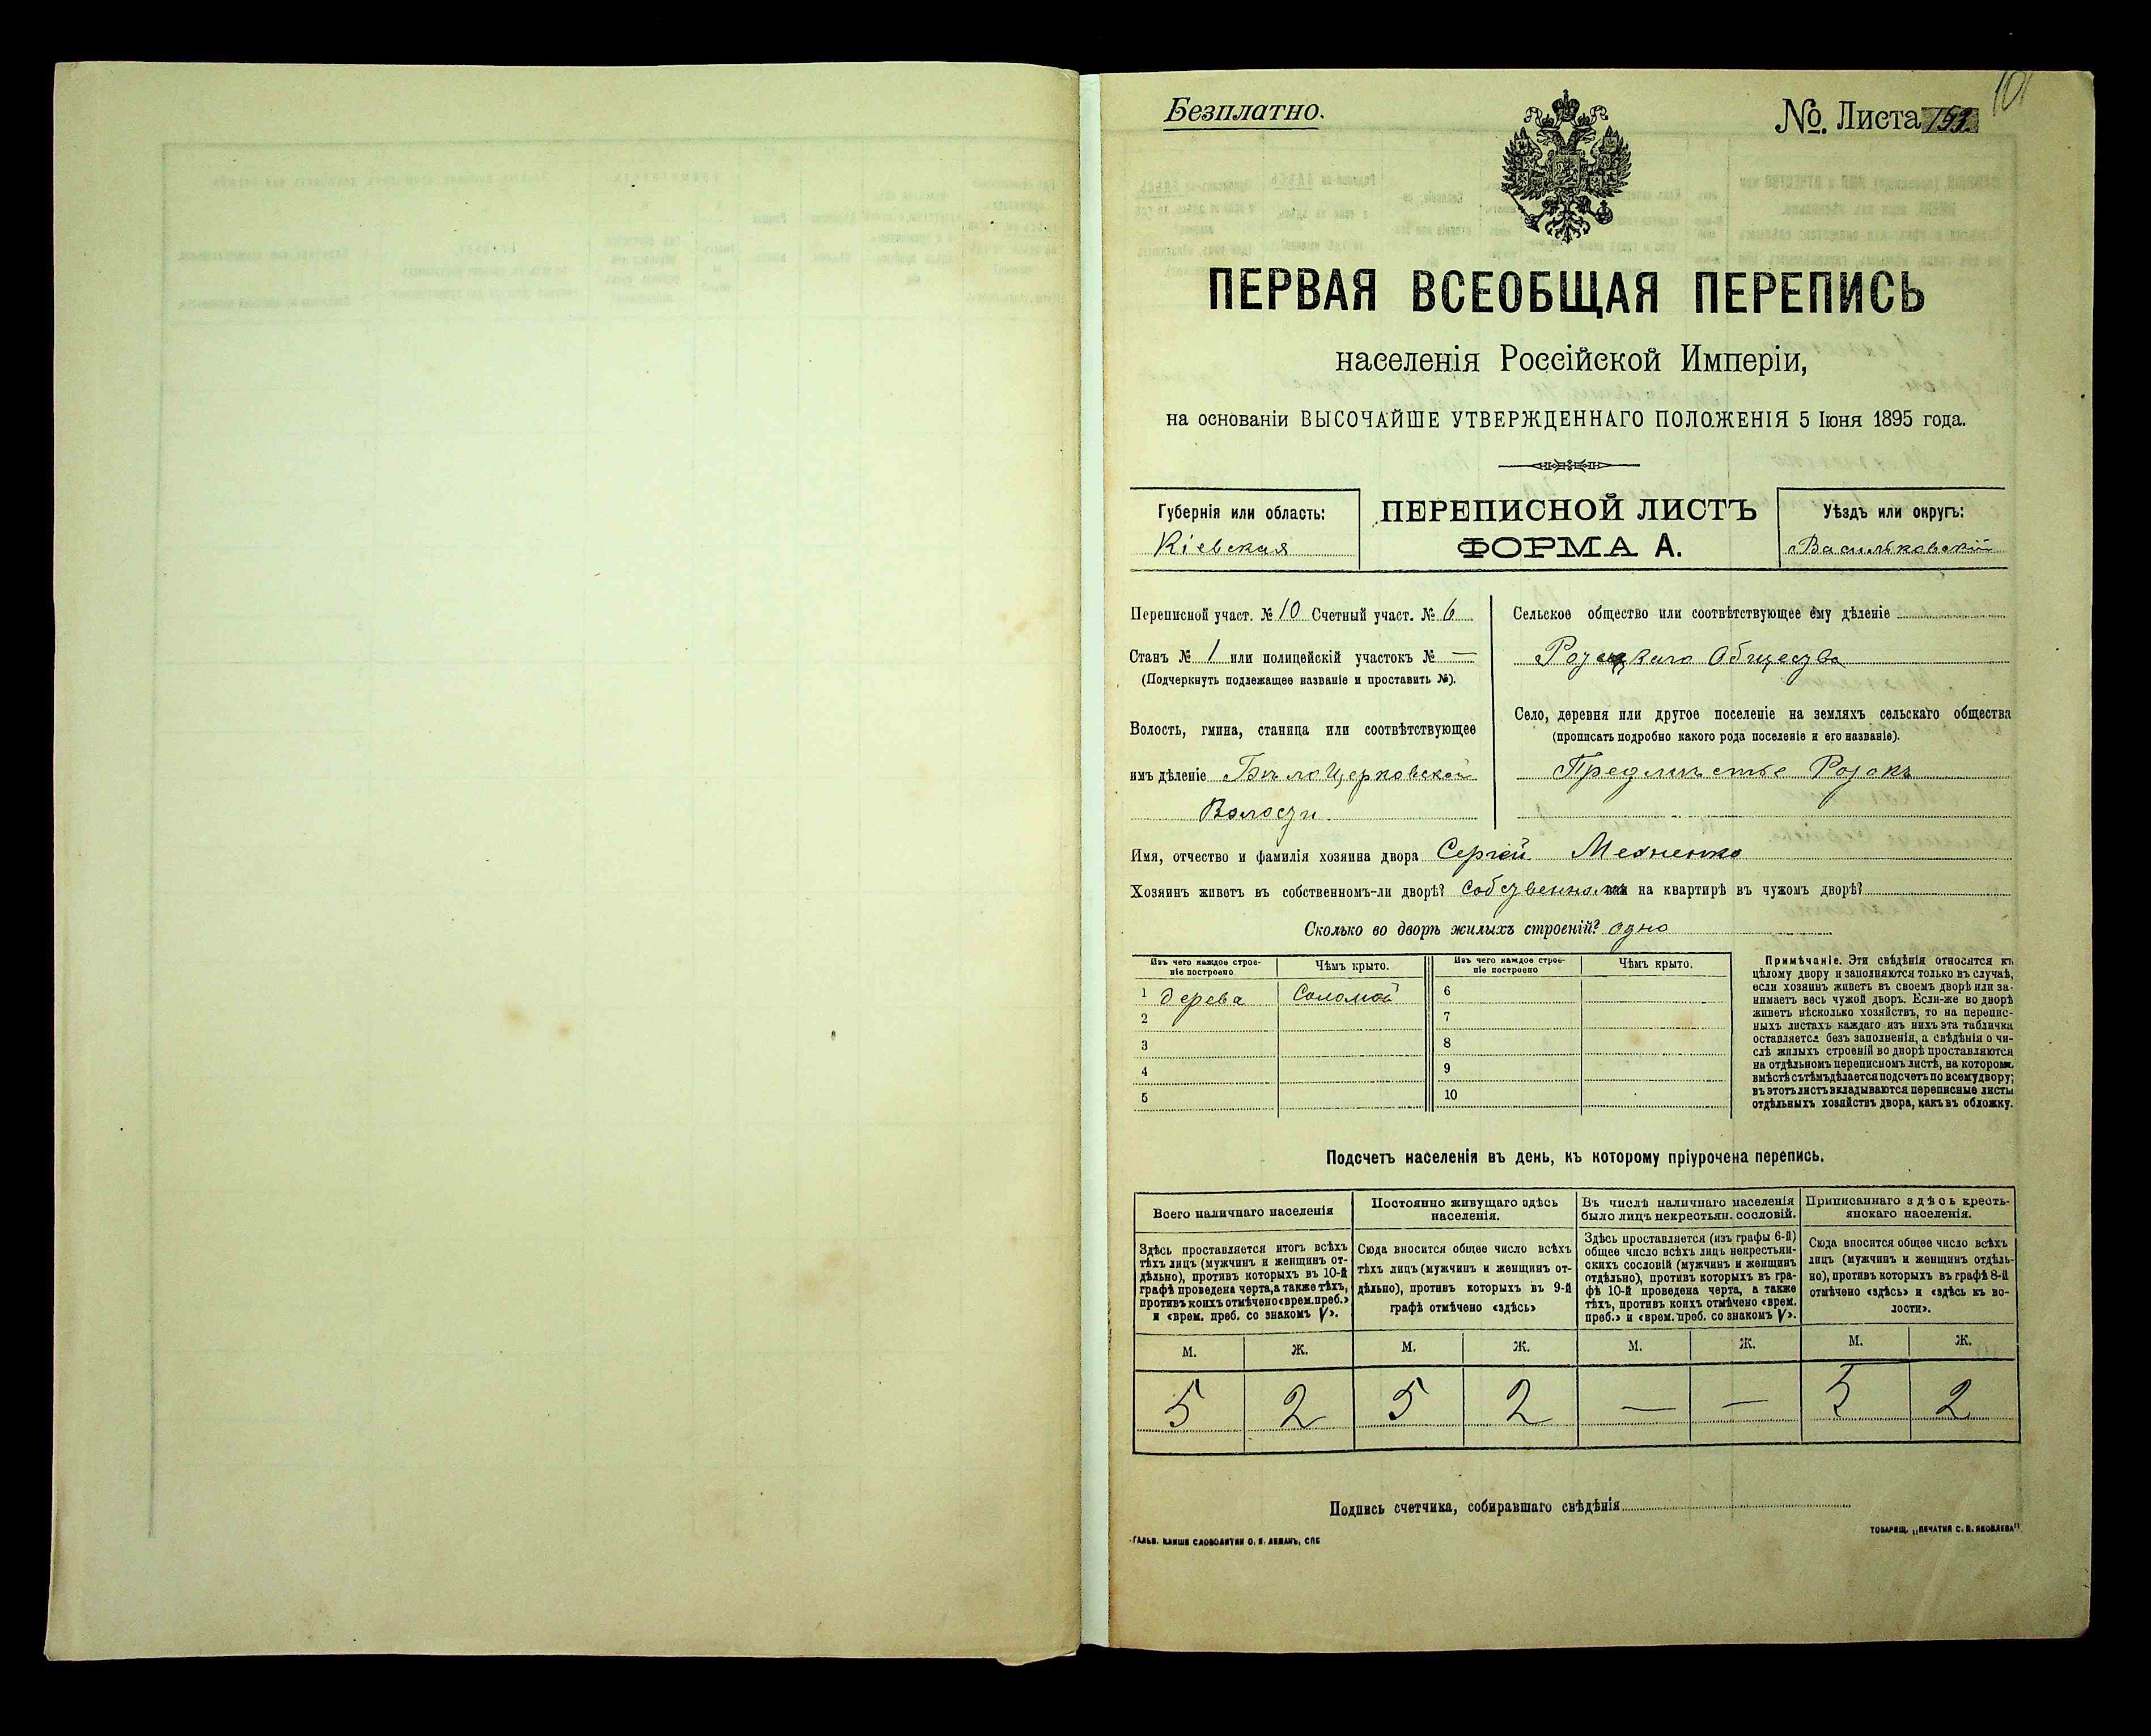 Безплатно.
№ Листа 153.
101
ПЕРВАЯ ВСЕОБЩАЯ ПЕРЕПИСЬ
населенія Россійской Имперіи,
на основаніи ВЫСОЧАЙШЕ УТВЕРЖДЕННАГО ПОЛОЖЕНІЯ 5 Іюня 1895 года.
Губернія или область:
Кіевская
ПЕРЕПИСНОЙ ЛИСТЪ
ФОРМА А.
Уѣздъ или округъ:
Васильковскій
Переписной участ. № 10 Счетный участ. № 6
Станъ № 1 или полицейскій участокъ № —
(Подчеркнуть подлежащее названіе и проставить №).
Волость, гмина, станица или соотвѣтствующее
имъ дѣленіе Бѣлоцерковской
Волости
Сельское общество или соотвѣтствующее ему дѣленіе
Общества
Село, деревня или другое поселеніе на земляхъ сельскаго общества
(прописать подробно какого рода поселеніе и его названіе).
Предмѣстье Ротокъ
Имя, отчество и фамилія хозяина двора Сергѣй
Хозяинъ живетъ въ собственномъ-ли дворѣ? Собственномъ или на квартирѣ въ чужомъ дворѣ?
Сколько во дворѣ жилыхъ строеній? одно
Изъ чего каждое строе-
ніе построено
Чѣмъ крыто.
Изъ чего каждое строе-
ніе построено
Чѣмъ крыто.
1 дерева Соломой 6
2 7
3 8
4 9
5 10
Примѣчаніе. Эти свѣдѣнія относятся къ
цѣлому двору и заполняются только въ случаѣ,
если хозяинъ живетъ въ своемъ дворѣ или за-
нимаетъ весь чужой дворъ. Если-же во дворѣ
живетъ нѣсколько хозяйствъ, то на перепис-
ныхъ листахъ каждаго изъ нихъ эта табличка
оставляется безъ заполненія, а свѣдѣнія о чи-
слѣ жилыхъ строеній во дворѣ проставляются
на отдѣльномъ переписномъ листѣ, на которомъ
вмѣстѣ съ тѣмъ дѣлается подсчетъ по всему двору;
въ этотъ листъ вкладываются переписные листы
отдѣльныхъ хозяйствъ двора, какъ въ обложку.
Подсчетъ населенія въ день, къ которому пріурочена перепись.
Всего наличнаго населенія
Здѣсь проставляется итогъ всѣхъ
тѣхъ лицъ (мужчинъ и женщинъ от-
дѣльно), противъ которыхъ въ 10-й
графѣ проведена черта, а также тѣхъ,
противъ коихъ отмѣчено «врем. преб.»
и «врем. преб. со знакомъ V».
Постоянно живущаго здѣсь
населенія.
Сюда вносится общее число всѣхъ
тѣхъ лицъ (мужчинъ и женщинъ от-
дѣльно), противъ которыхъ въ 9-й
графѣ отмѣчено «здѣсь»
Въ числѣ наличнаго населенія
было лицъ некрестьян. сословій.
Здѣсь проставляется (изъ графы 6-й)
общее число всѣхъ лицъ некрестьян-
скихъ сословій (мужчинъ и женщинъ
отдѣльно), противъ которыхъ въ гра-
фѣ 10-й проведена черта, а также
тѣхъ, противъ коихъ отмѣчено «врем.
преб.» и «врем. преб. со знакомъ V».
Приписаннаго здѣсь кресть-
янскаго населенія.
Сюда вносится общее число всѣхъ
лицъ (мужчинъ и женщинъ отдѣль-
но), противъ которыхъ въ графѣ 8-й
отмѣчено «здѣсь» и «здѣсь къ во-
лости».
М. Ж. М. Ж. М. Ж. М. Ж.
5 2 5 2 — — 5 2
Подпись счетчика, собиравшаго свѣдѣнія
ГАЛЬВ. КЛИШЕ СЛОВОЛИТНИ О. И. ЛЕМАНЪ, СПБ
ТОВАРИЩ. „ПЕЧАТНЯ С. П. ЯКОВЛЕВА"